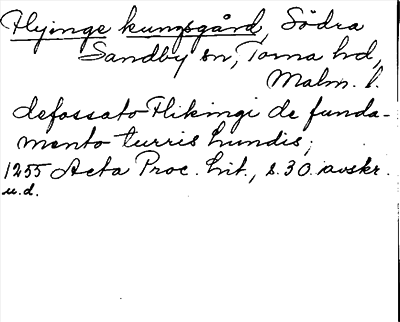 Flyinge kungsgård, Södra
Sandby sn, Torna hd,
Malm. l.
defossato Flikingi de funda-
mento turris hundis;
1255 Acta Proc. Lit., s. 30. avskr.
u.d.